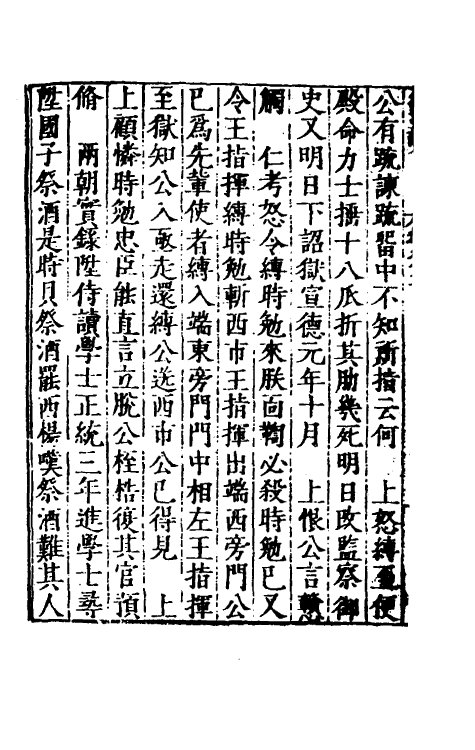 公有疏諫疏留中不知所指云何　上怒縛至便
殿命力士捶十八瓜折其肋幾死明日改監察御
史又明日下詔獄宣德元年十月　上恨公言戇
觸　仁考怒令縛時勉來朕面鞫必殺時勉已又
令王指揮縛時勉斬西市王指揮出端西旁門公
已為先輩使者縛入端東旁門門中相左王指揮
至獄知公入亟走還縛公送西市公已得見　上
上顧憐時勉忠臣能直言立脫公桎梏復其官預
脩　兩朝實錄陞侍讀學士正統三年進學士尋
陞國子祭酒是時貝祭酒罷西楊嘆祭酒難其人